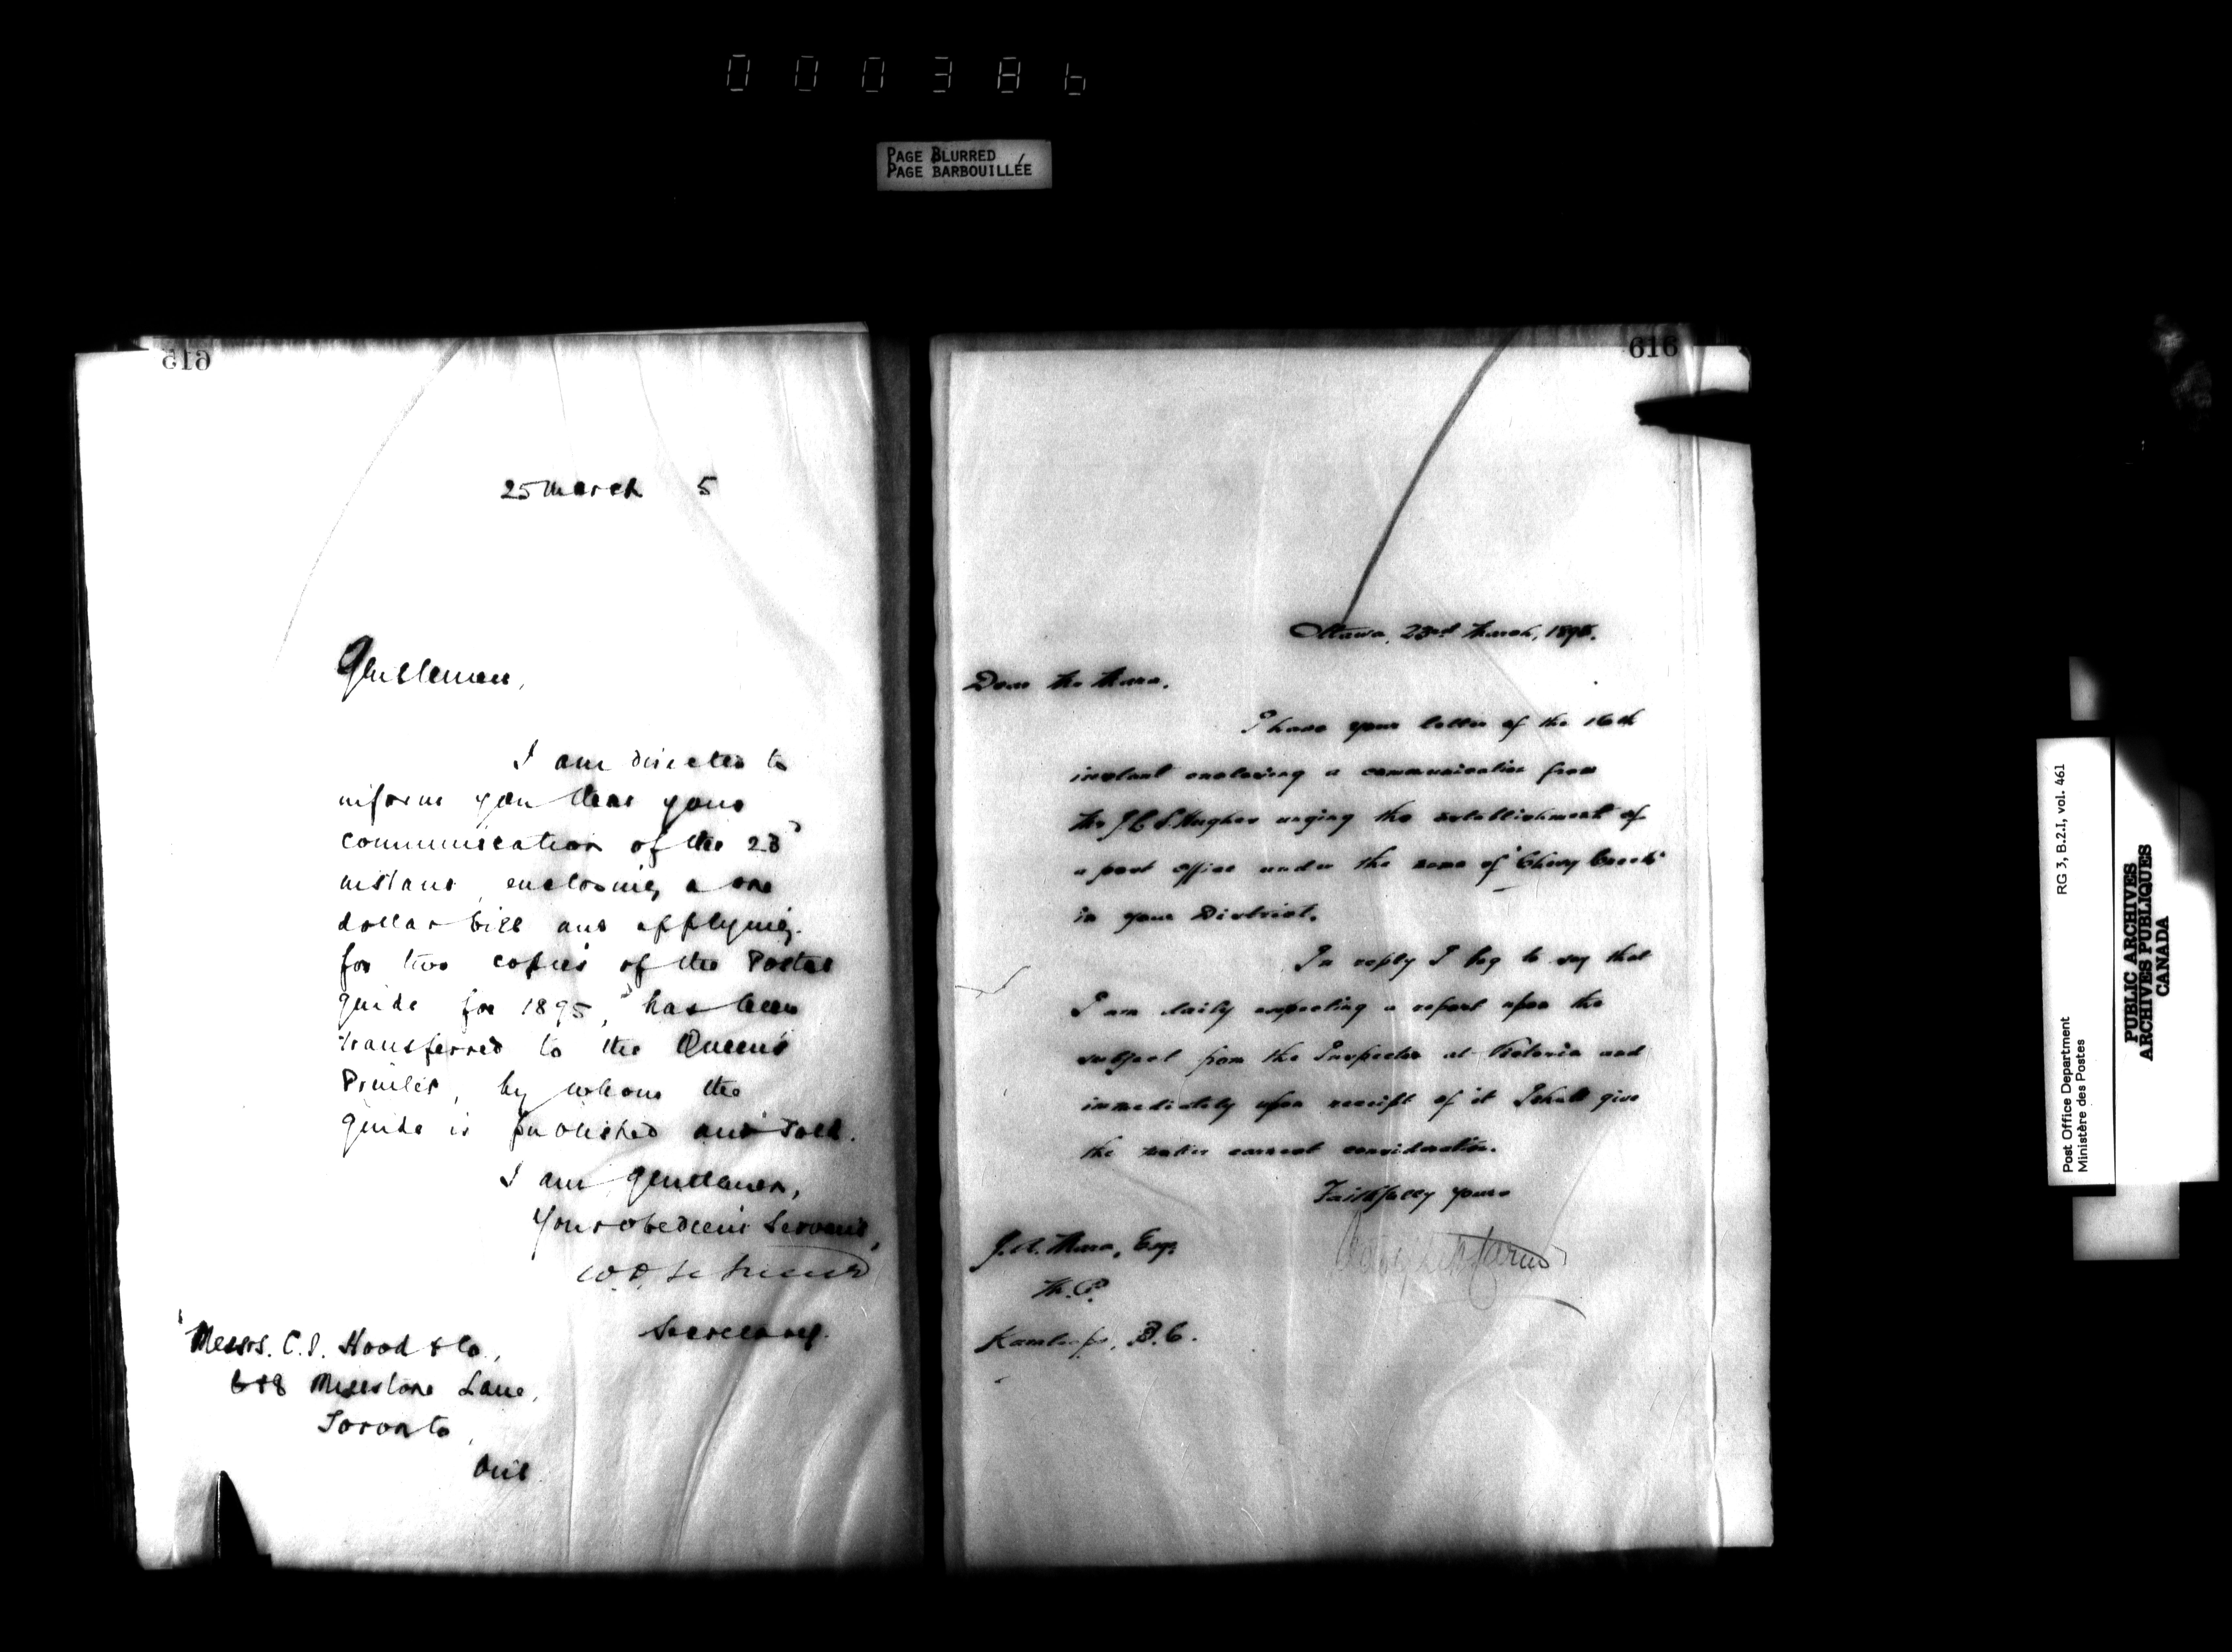 000386
PAGE BLURRED
PAGE BARBOUILLÉE
615
25 March 5
Gentlemen,
I am directed to
inform you that your
communication of the 23d
instant, enclosing a one
dollar bill and applying
for two copies of the Postal
guide for 1895, has been
transferred to the Queen's
Printer, by whom the
guide is published and sold.
I am, Gentlemen,
Your obedient Servant,
Secretary.
Messrs. C.I. Hood & Co.,
Milestone Lane,
Toronto,
Ont
616
Ottawa, 23rd March, 1895.
Dear Mr Mara,
I have your letter of the 16th
instant enclosing a communication from
Mr J.C.S. Hughes urging the establishment of
a post office under the name of "Cherry Creek"
in your District.
In reply I beg to say that
I am daily expecting a report upon the
subject from the Inspector at Victoria and
immediately upon receipt of it I shall give
the matter earnest consideration.
Faithfully yours
J.A. Mara, Esq.
M.P.
Kamloops, B.C.
Post Office Department
Ministère des Postes
RG 3, B.2.I, vol. 461
PUBLIC ARCHIVES
ARCHIVES PUBLIQUES
CANADA